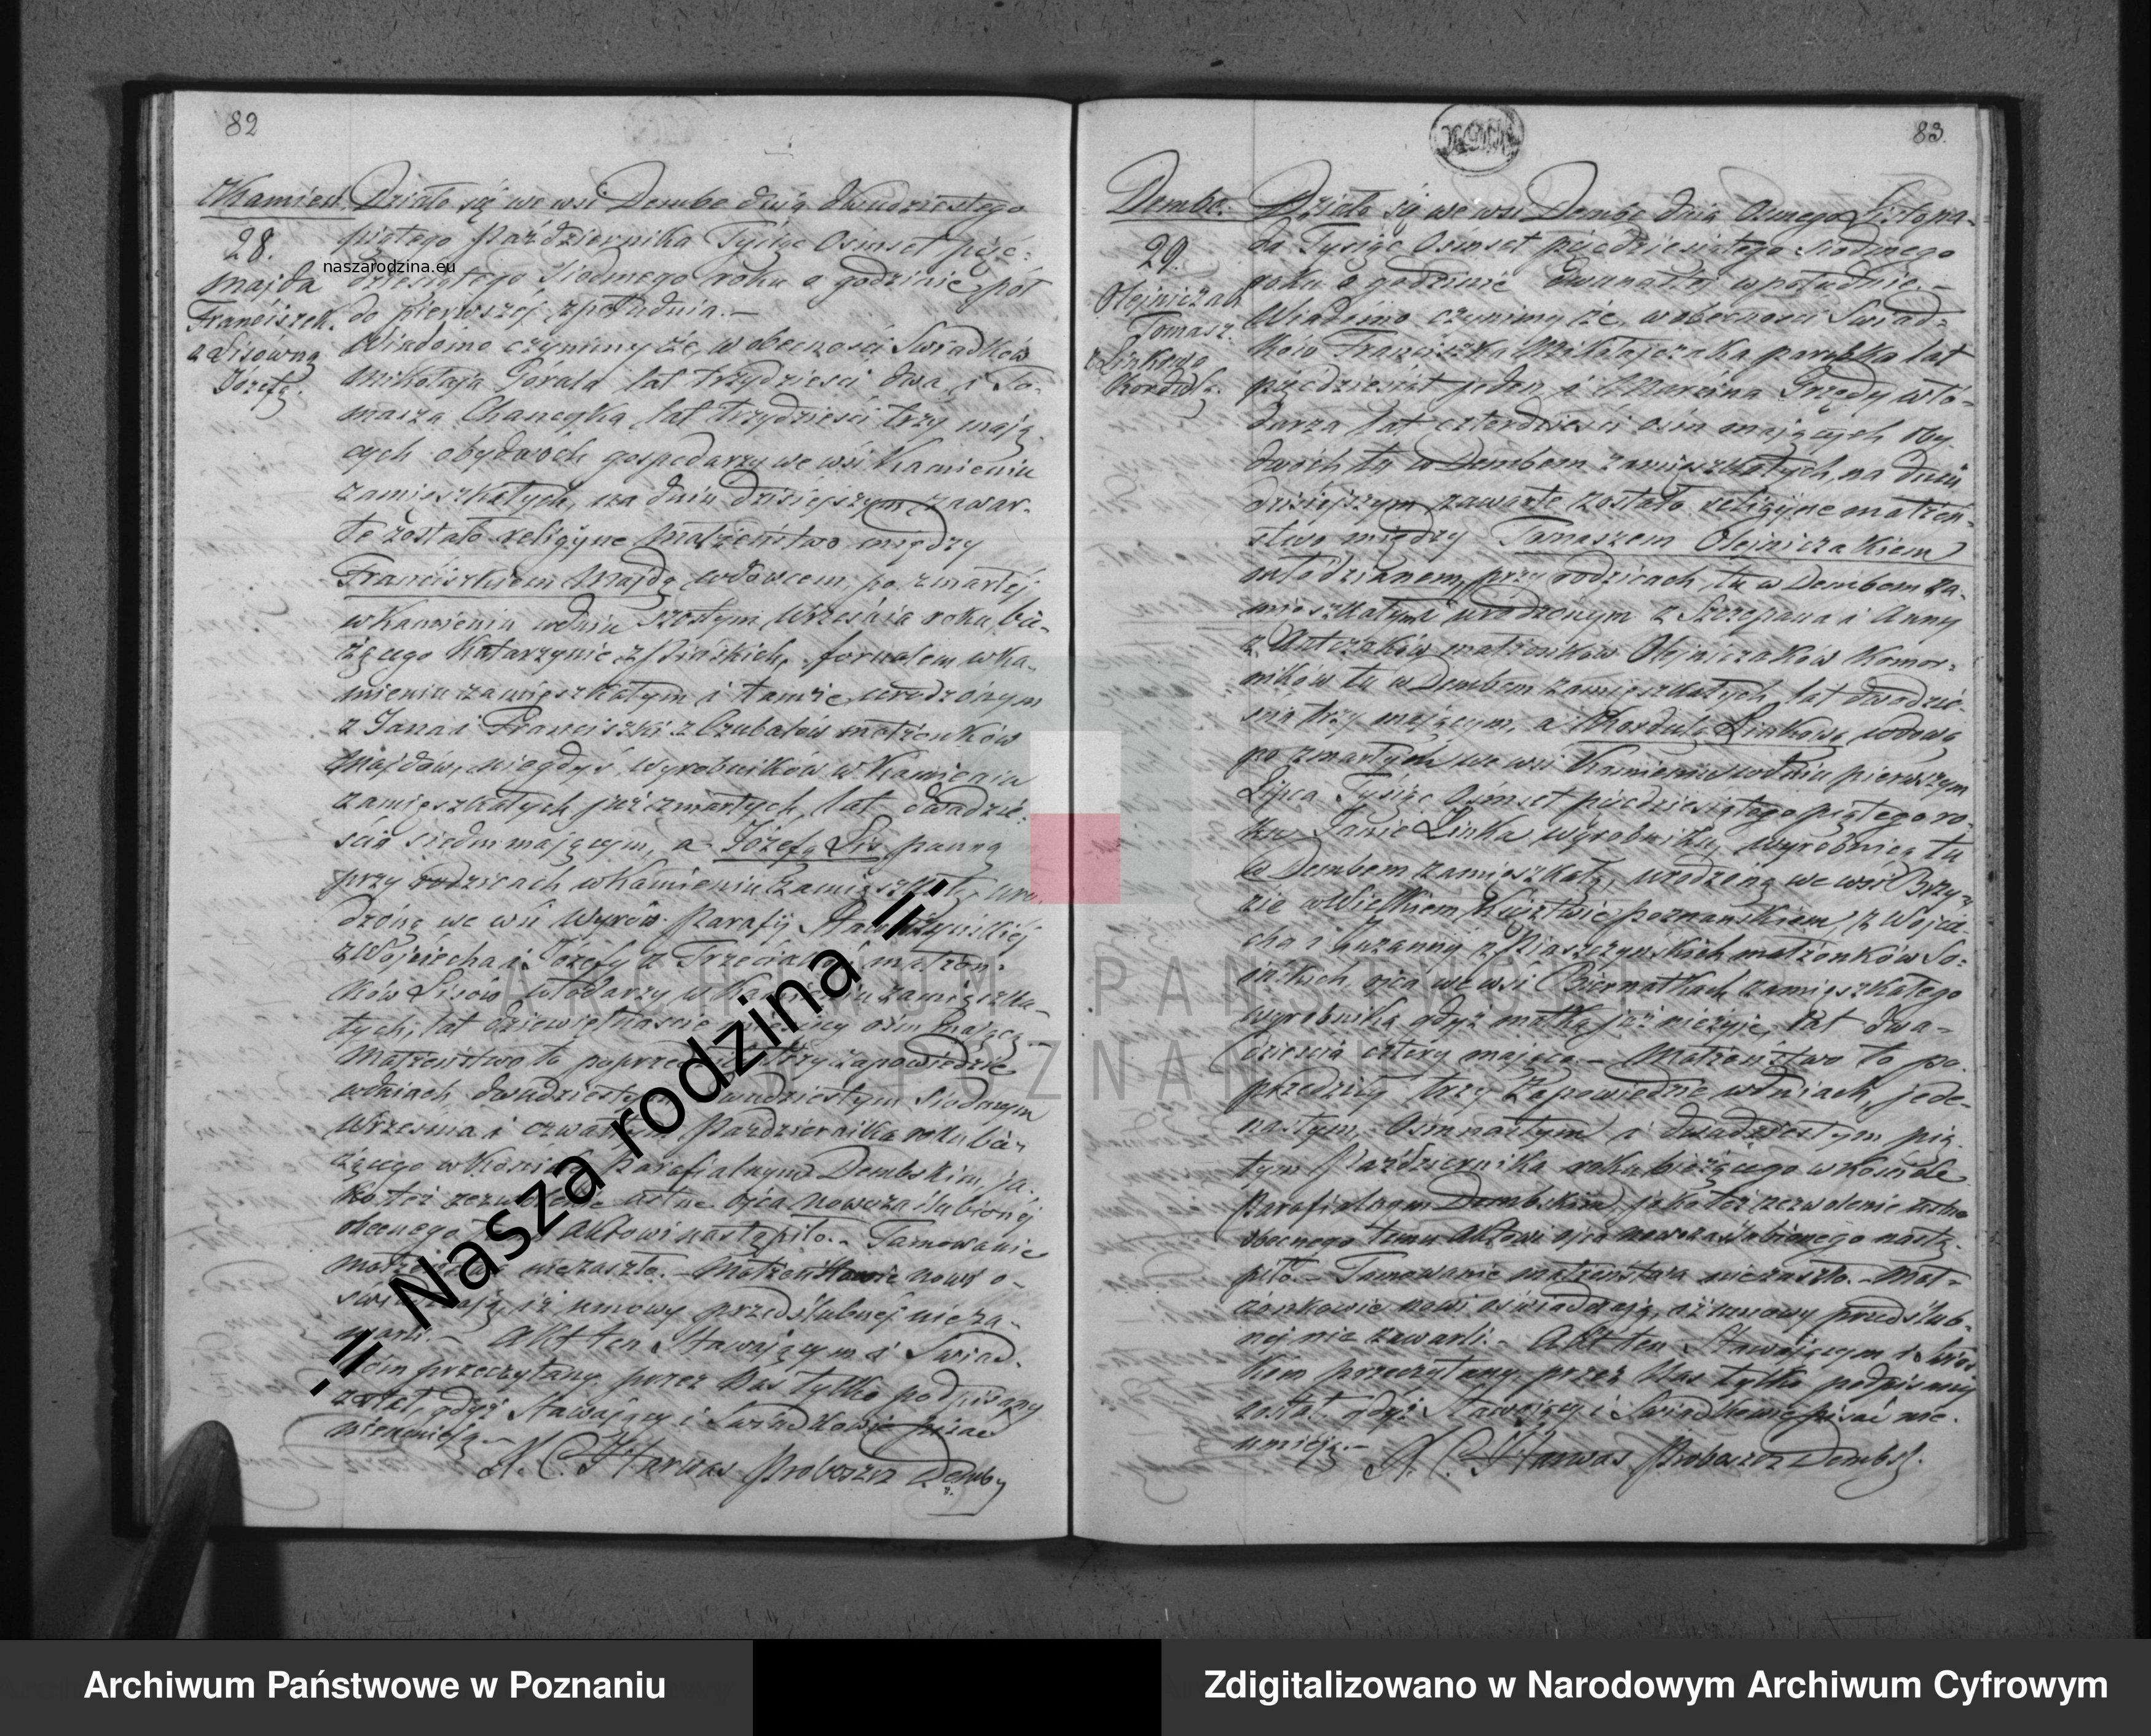 82
Kamień.
28.
Majda
Franciszek.
z Lisówną
Józefą.
Działo się we wsi Dembe dnia dwudziestego
piątego Października Tysiąc Ośmset pięć-
naszarodzina.eu
dziesiątego siodmego roku o godzinie pół
do pierwszéj z południa.—
Wiadomo czynimy że w obecności Swiadków
Mikołaja Gorala lat trzydzieści dwa, i To-
masza lat trzydzieści trzy mają-
cych obydwóch gospodarzy we wsi Kamieniu
zamieszkałych, na dniu dzisiejszym zawar-
te zostało religijne Małżeństwo między
Franciszkiem Majdą, wdowcem, po zmarłéj
w Kamieniu w dniu szóstym Września roku bie-
żącego Katarzynie z fornalem w Ka-
mieniu zamieszkałym i tamże urodzonym
z Jana i Franciszki z Czubałów małżonków
Majdów, niegdyś wyrobników w Kamieniu
zamieszkałych już zmarłych, lat dwadzie-
ścia siedm mającym, a Józefą Lis, panną
przy rodzicach w Kamieniu zamieszkałą, uro-
dzoną we wsi Wyrów Parafij
z Wojciecha i Józefy z małżon-
ków Lisów włodarzy w Kamieniu zamieszka-
łych, lat dziewiętnaście ośm mającą.—
Małżeństwo to poprzedziły trzy zapowiedzie
w dniach dwudziestym dwudziestym siodmym
Września i czwartym Października roku bie-
żącego w Kościele Parafialnym Dembskim, ja-
ko też zezwolenie ustne ojca nowozaślubionéj
obecnego Aktowi nastąpiło.— Tamowanie
małżeństwa niezaszło.— Małżonkowie nowi o-
swiadczają, iż umowy przedślubnéj nieza-
warli.— Akt ten Stawającym i Swiad-
kom przeczytany, przez Nas tylko podpisany
został, gdyż Stawający i Swiadkowie pisać
nieumieją.—
-=Nasza rodzina=-
83.
Dembe.
29.
Olejniczak
Tomasz.
z Linkową
Kordulą.
Działo się we wsi Dembe dnia Osmego Listopa-
da Tysiąc Ośmset pięćdziesiątego siodmego
roku o godzinie Dwunastéj w południe.—
Wiadomo czynimy że, w obecności Swiad-
ków Franciszka Mikołajczaka parobka lat
pięćdziesiąt jeden i Marcina Grzędy wło-
darza lat czterdzieści ośm mających oby-
dwóch tu w Dembem zamieszkałych, na dniu
dzisiejszym zawarte zostało religijne małżeń-
stwo między Tomaszem Olejniczakiem
młodzianem, przy rodzicach, tu w Dembem za-
mieszkałym i urodzonym z Szczepana i Anny
z Antczaków małżonków Olejniczaków Komor-
ników tu w Dembem zamieszkałych, lat dwadzie-
ścia trzy mającym, a Kordulą Linkową, wdową
po zmarłym we wsi Kamieniu w dniu pierwszym
Lipca Tysiąc Ośmset pięćdziesiątego piątego ro-
ku Janie Linka wyrobniku, wyrobnicą tu
w Dembem zamieszkałą, urodzoną we wsi Brzy-
zie w Wielkiem Księztwie Poznańskiem, z Wojcie-
cha i Zuzanny z małżonków So-
ińskich, ojca we wsi Biernatkach zamieszkałego
wyrobnika, gdyż matka już nieżyje, lat dwa-
dzieścia cztery mającą.— Małżeństwo to po-
przedziły trzy Zapowiedzie w dniach, jede-
nastym, Osmnastym i dwudziestym pią-
tym Października roku bieżącego w Kościele
Parafialnym Dembskim, jako też zezwolenie ustne
obecnego temu Aktowi ojca nowozaślubionego nastą-
piło.— Tamowanie małżeństwa niezaszło.— Mał-
żonkowie nowi oświadczają, iż umowy przedślub-
néj nie zawarli.— Akt ten Stawającym i Swiad-
kom przeczytany, przez Nas tylko podpisany
został, gdyż Stawający i Swiadkowie pisać nie-
umieją.—
ARCHIWUM PAŃSTWOWE
W POZNANIU
Archiwum Państwowe w Poznaniu
Zdigitalizowano w Narodowym Archiwum Cyfrowym